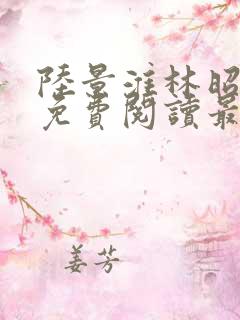 陸景淮林昭
免費閱讀最
姜芳